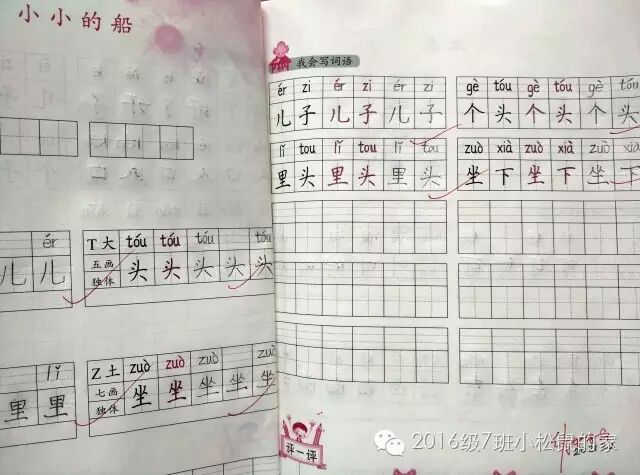 小小的船
ér
儿 儿
T 大 tóu tóu tóu tóu
五画 头 头 头 头 头
独体
lǐ
里 里
Z 土 zuò zuò zuò zuò
七画 坐 坐 坐 坐 坐
独体
我会写词语
ér zi ér zi ér zi
儿 子 儿 子 儿 子
gè tóu gè tóu gè tóu
个 头 个 头 个 头
lǐ tou lǐ tou lǐ tou
里 头 里 头 里 头
zuò xià zuò xià zuò xià
坐 下 坐 下 坐 下
评一评
2016级7班小松鼠的家